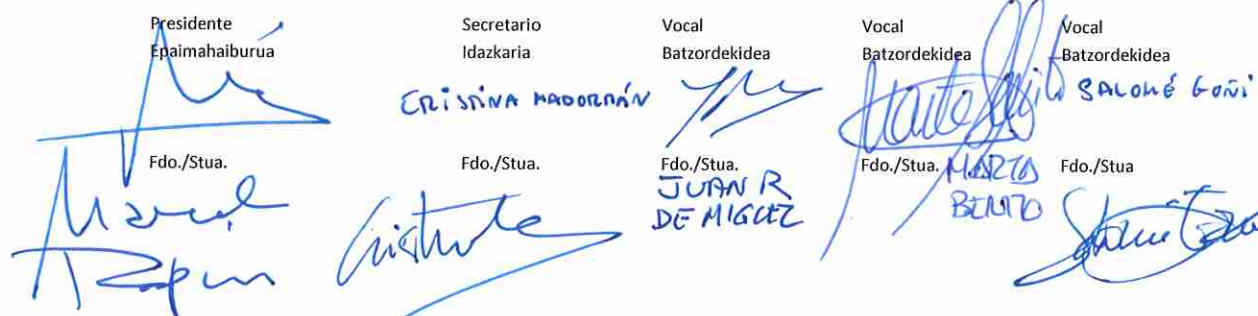 Presidente
Epaimahaiburua
Fdo./Stua.
Secretario
Idazkaria
CRISTINA MADORRÁN
Fdo./Stua.
Vocal
Batzordekidea
Fdo./Stua.
JUAN R
DE MIGUEL
Vocal
Batzordekidea
Fdo./Stua.
MARTA
BENITO
Vocal
Batzordekidea
SALOMÉ GOÑI
Fdo./Stua